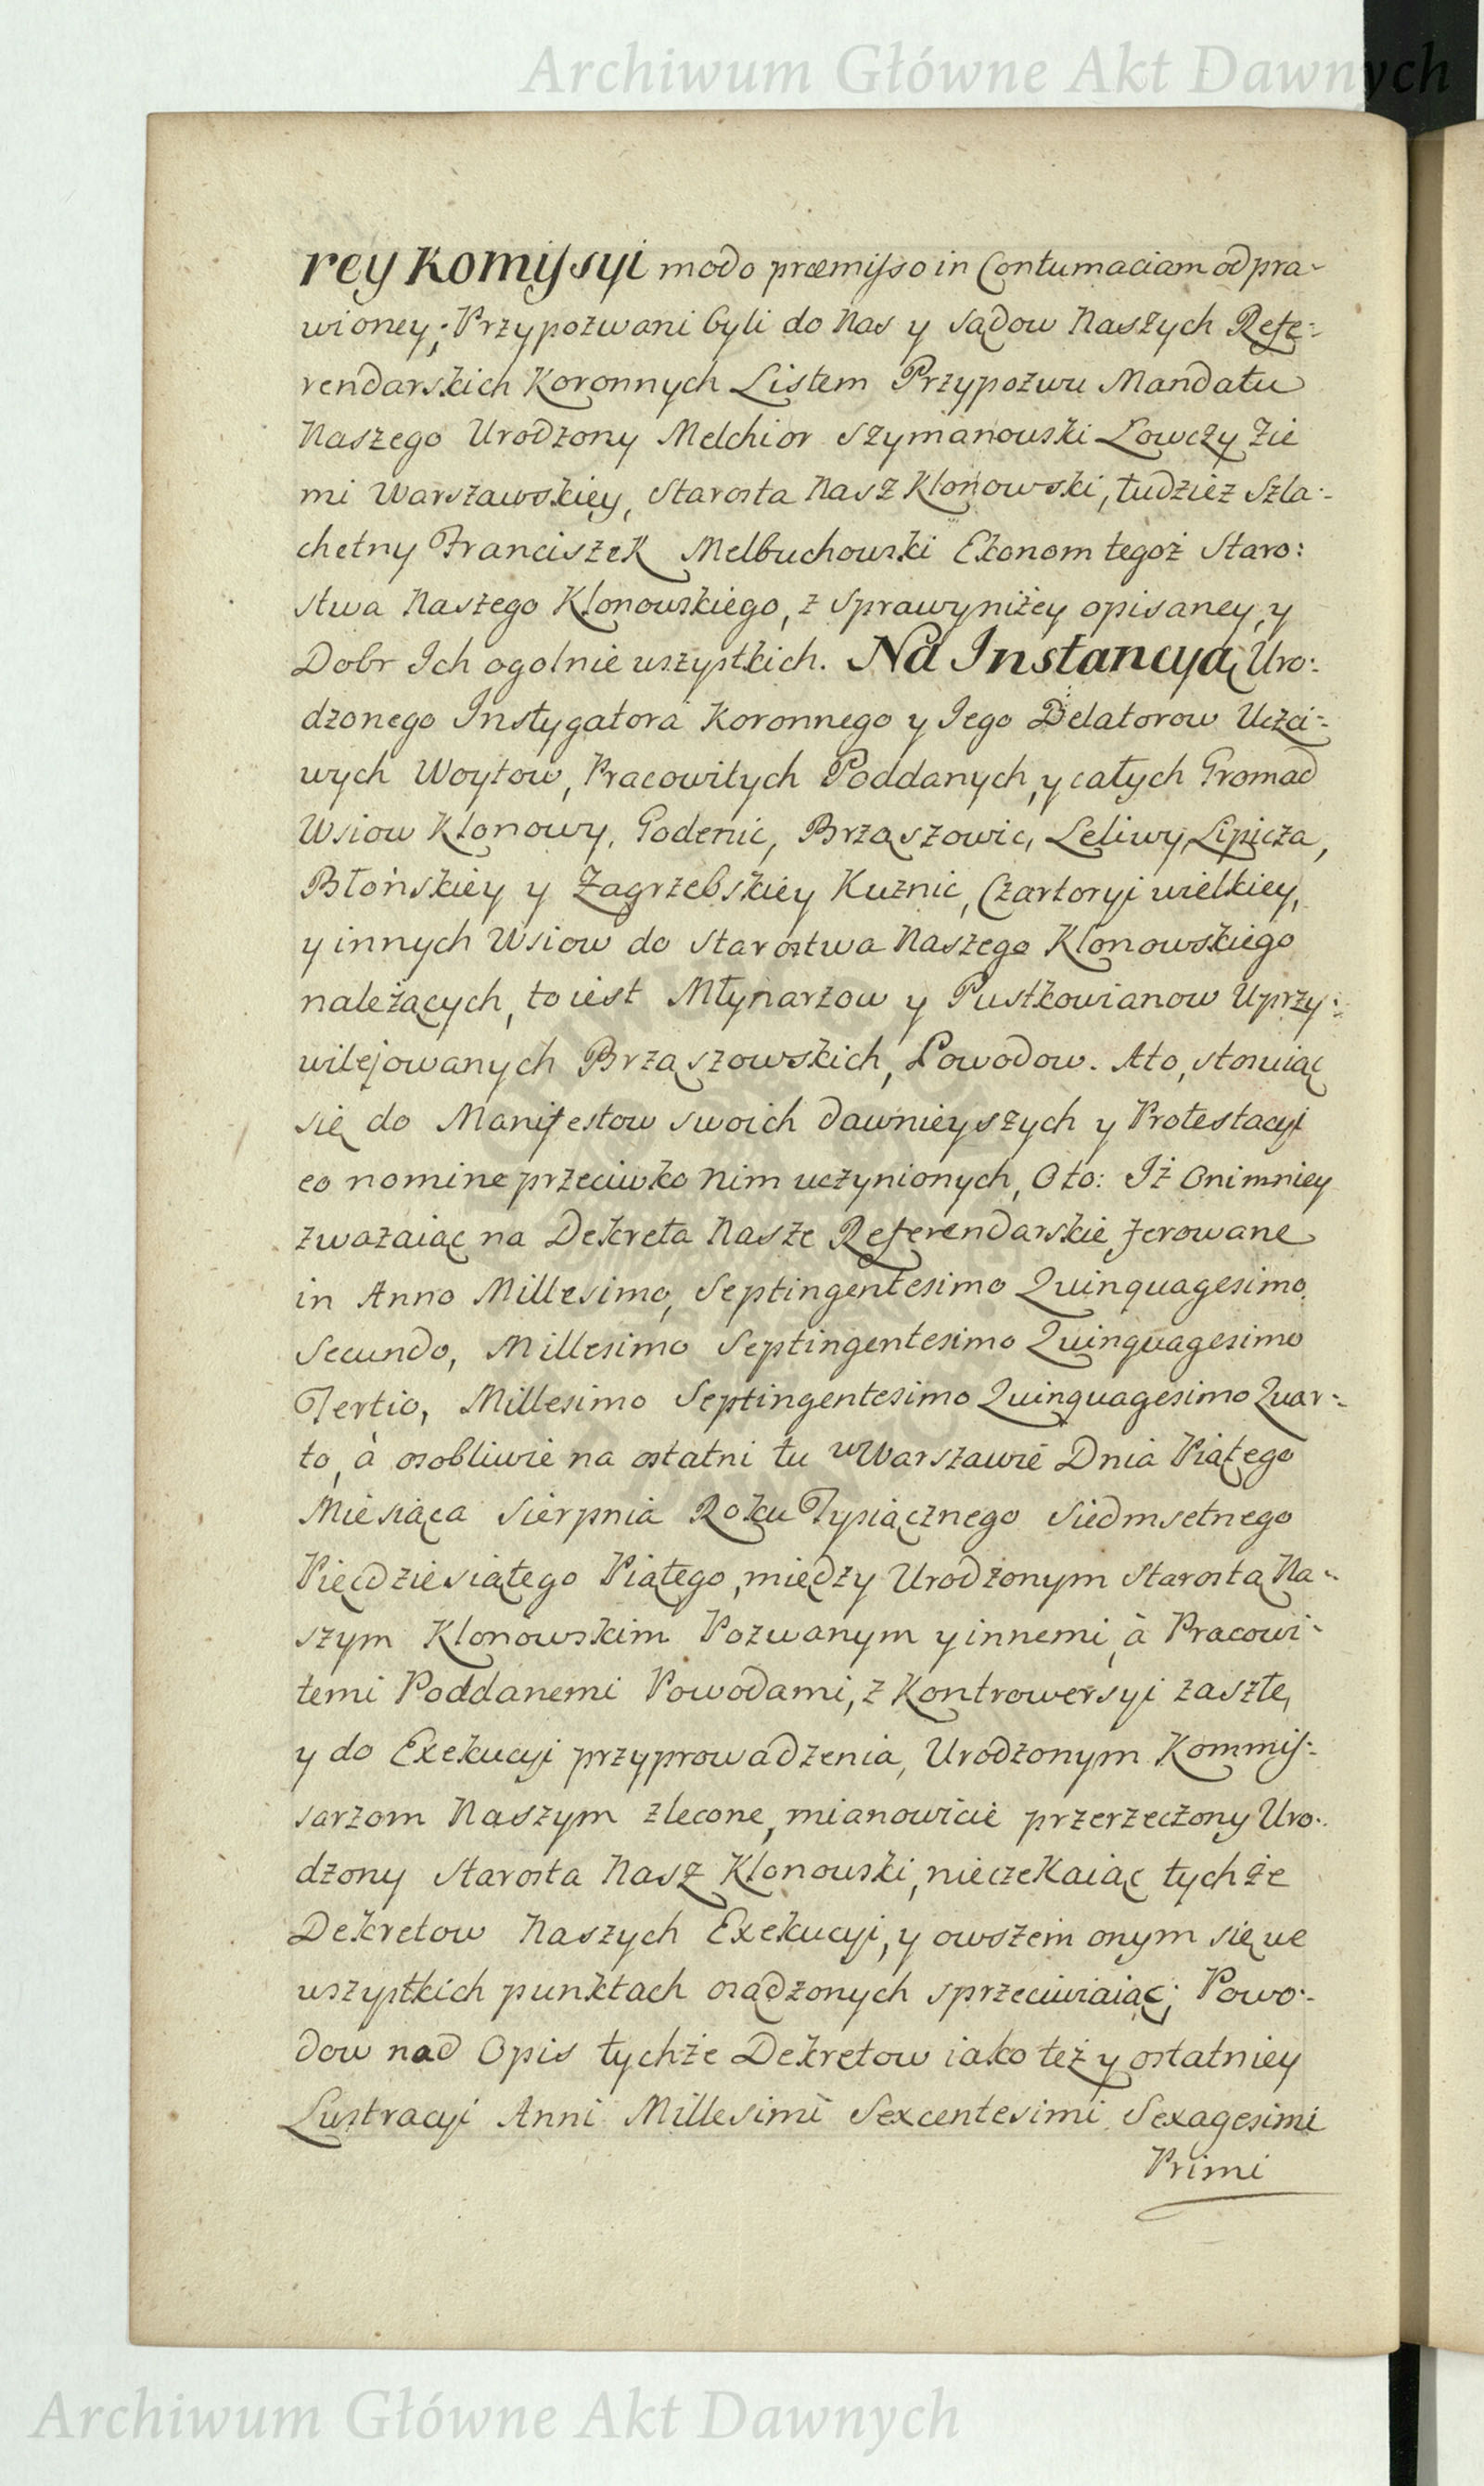 Archiwum Główne Akt Dawnych
rey Komissyi modo præmisso in Contumaciam odpra-
wioney; Przypozwani byli do Nas y Sądow Naszych Refe-
rendarskich Koronnych Listem Przypozwu Mandatu
Naszego Urodzony Melchior Szymanowski Łowczy Zie
mi Warszawskiey, Starosta Nasz Klonowski, tudziez Szla-
chetny Franciszek Melbuchowski Ekonom tegoż Staro:
stwa Naszego Klonowskiego, z Sprawy niżey opisaney, y
Dobr Ich ogolnie wszystkich. Na Instancyą Uro:
dzonego Instygatora Koronnego y Jego Delatorow Uczci-
wych Woytow, Pracowitych Poddanych, y całych Gromad
Wsiow Klonowy, Godenic, Brząszowic, Leliwy, Lipicza,
Błońskiey y Zagrzebskiey Kuznic, Czartoryi wielkiey,
y innych Wsiow do Starostwa Naszego Klonowskiego
należących, to iest Młynarzow y Pustkowianow Uprzy:
wilejowanych Brząszowskich, Powodow. Ato, stosuiąc
się do Manifestow swoich dawnieyszych y Protestacyi
eo nomine przeciwko Nim uczynionych, Oto: Iż Oni mniey
zważaiąc na Dekreta Nasze Referendarskie ferowane
in Anno Millesimo, Septingentesimo Quinquagesimo
Secundo, Millesimo Septingentesimo Quinquagesimo
Tertio, Millesimo Septingentesimo Quinquagesimo Quar-
to, à osobliwie na ostatni tu w Warszawie Dnia Piątego
Miesiąca Sierpnia Roku Tysiącznego Siedmsetnego
Pięćdziesiątego Piątego, między Urodzonym Starostą Na-
szym Klonowskim Pozwanym y innemi, à Pracowi-
temi Poddanemi Powodami, z Kontrowersyi zaszłe,
y do Exekucyi przyprowadzenia, Urodzonym Kommis:
sarzom Naszym zlecone, mianowicie przerzeczony Uro:
dzony Starosta Nasz Klonowski, nieczekaiąc tychże
Dekretow Naszych Exekucyi, y owszem onym się we
wszystkich punktach osądzonych sprzeciwiaiąc; Powo:-
dow nad Opis tychże Dekretow iako też y ostatniey
Lustracyi Anni Millesimi Sexcentesimi Sexagesimi
Primi
Archiwum Główne Akt Dawnych